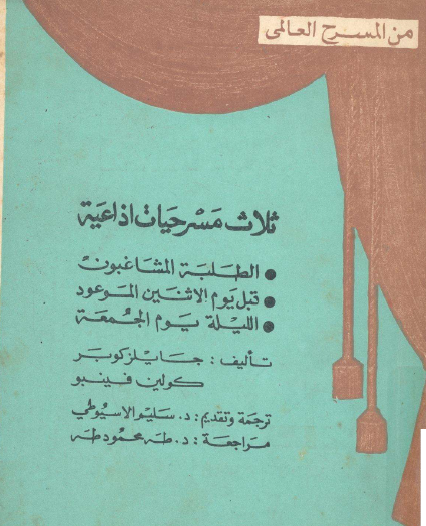 من المسرح العالمى
ثلاث مسرحيات اذاعية
الطلبة المشاغبون
قبل يوم الاثنين الموعود
الليلة يوم الجمعة
تأليف : جايلز كوبر
كولين فينبو
ترجمة وتقديم : د. سليم الاسيوطي
مراجعة : د. طه محمود طه